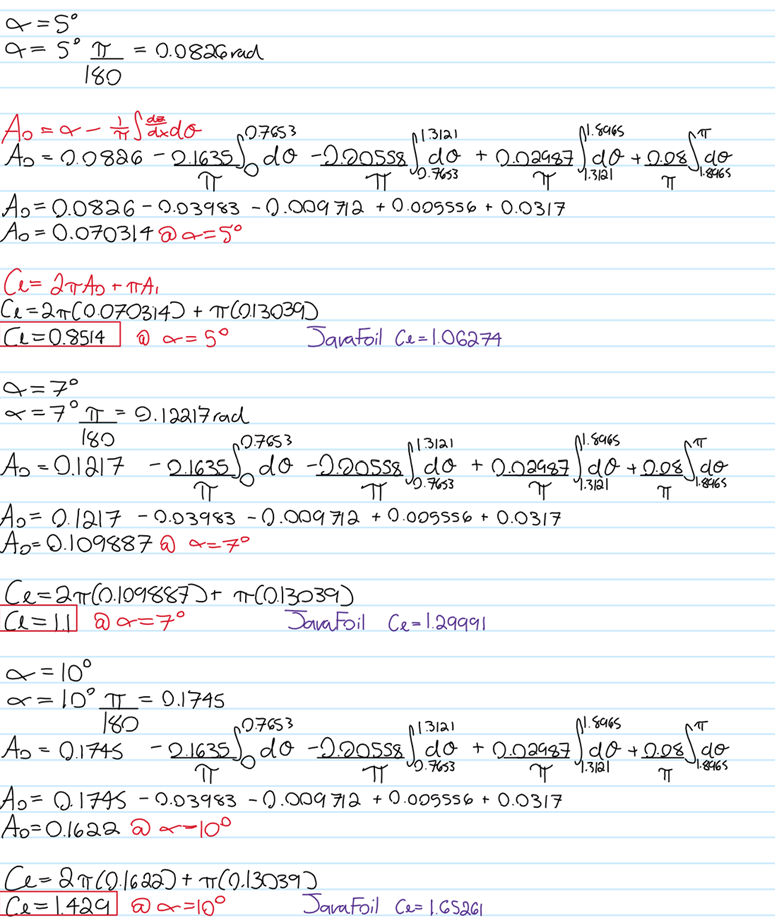 α = 5°
α = 5° π/180 = 0.0826 rad
A₀ = α - 1/π ∫ dz/dx dθ
A₀ = 0.0826 - 0.1635/π ∫₀^0.7653 dθ - 0.00558/π ∫_0.7653^1.3121 dθ + 0.02987/π ∫_1.3121^1.8965 dθ + 0.08/π ∫_1.8965^π dθ
A₀ = 0.0826 - 0.03983 - 0.009712 + 0.005556 + 0.0317
A₀ = 0.070314 @ α = 5°
Cl = 2πA₀ + πA₁
Cl = 2π(0.070314) + π(0.13039)
Cl = 0.8514 @ α = 5° JavaFoil Cl = 1.06274
α = 7°
α = 7° π/180 = 0.12217 rad
A₀ = 0.1217 - 0.1635/π ∫₀^0.7653 dθ - 0.00558/π ∫_0.7653^1.3121 dθ + 0.02987/π ∫_1.3121^1.8965 dθ + 0.08/π ∫_1.8965^π dθ
A₀ = 0.1217 - 0.03983 - 0.009712 + 0.005556 + 0.0317
A₀ = 0.109887 @ α = 7°
Cl = 2π(0.109887) + π(0.13039)
Cl = 1.1 @ α = 7° JavaFoil Cl = 1.29991
α = 10°
α = 10° π/180 = 0.1745
A₀ = 0.1745 - 0.1635/π ∫₀^0.7653 dθ - 0.00558/π ∫_0.7653^1.3121 dθ + 0.02987/π ∫_1.3121^1.8965 dθ + 0.08/π ∫_1.8965^π dθ
A₀ = 0.1745 - 0.03983 - 0.009712 + 0.005556 + 0.0317
A₀ = 0.1622 @ α = 10°
Cl = 2π(0.1622) + π(0.13039)
Cl = 1.429 @ α = 10° JavaFoil Cl = 1.65261